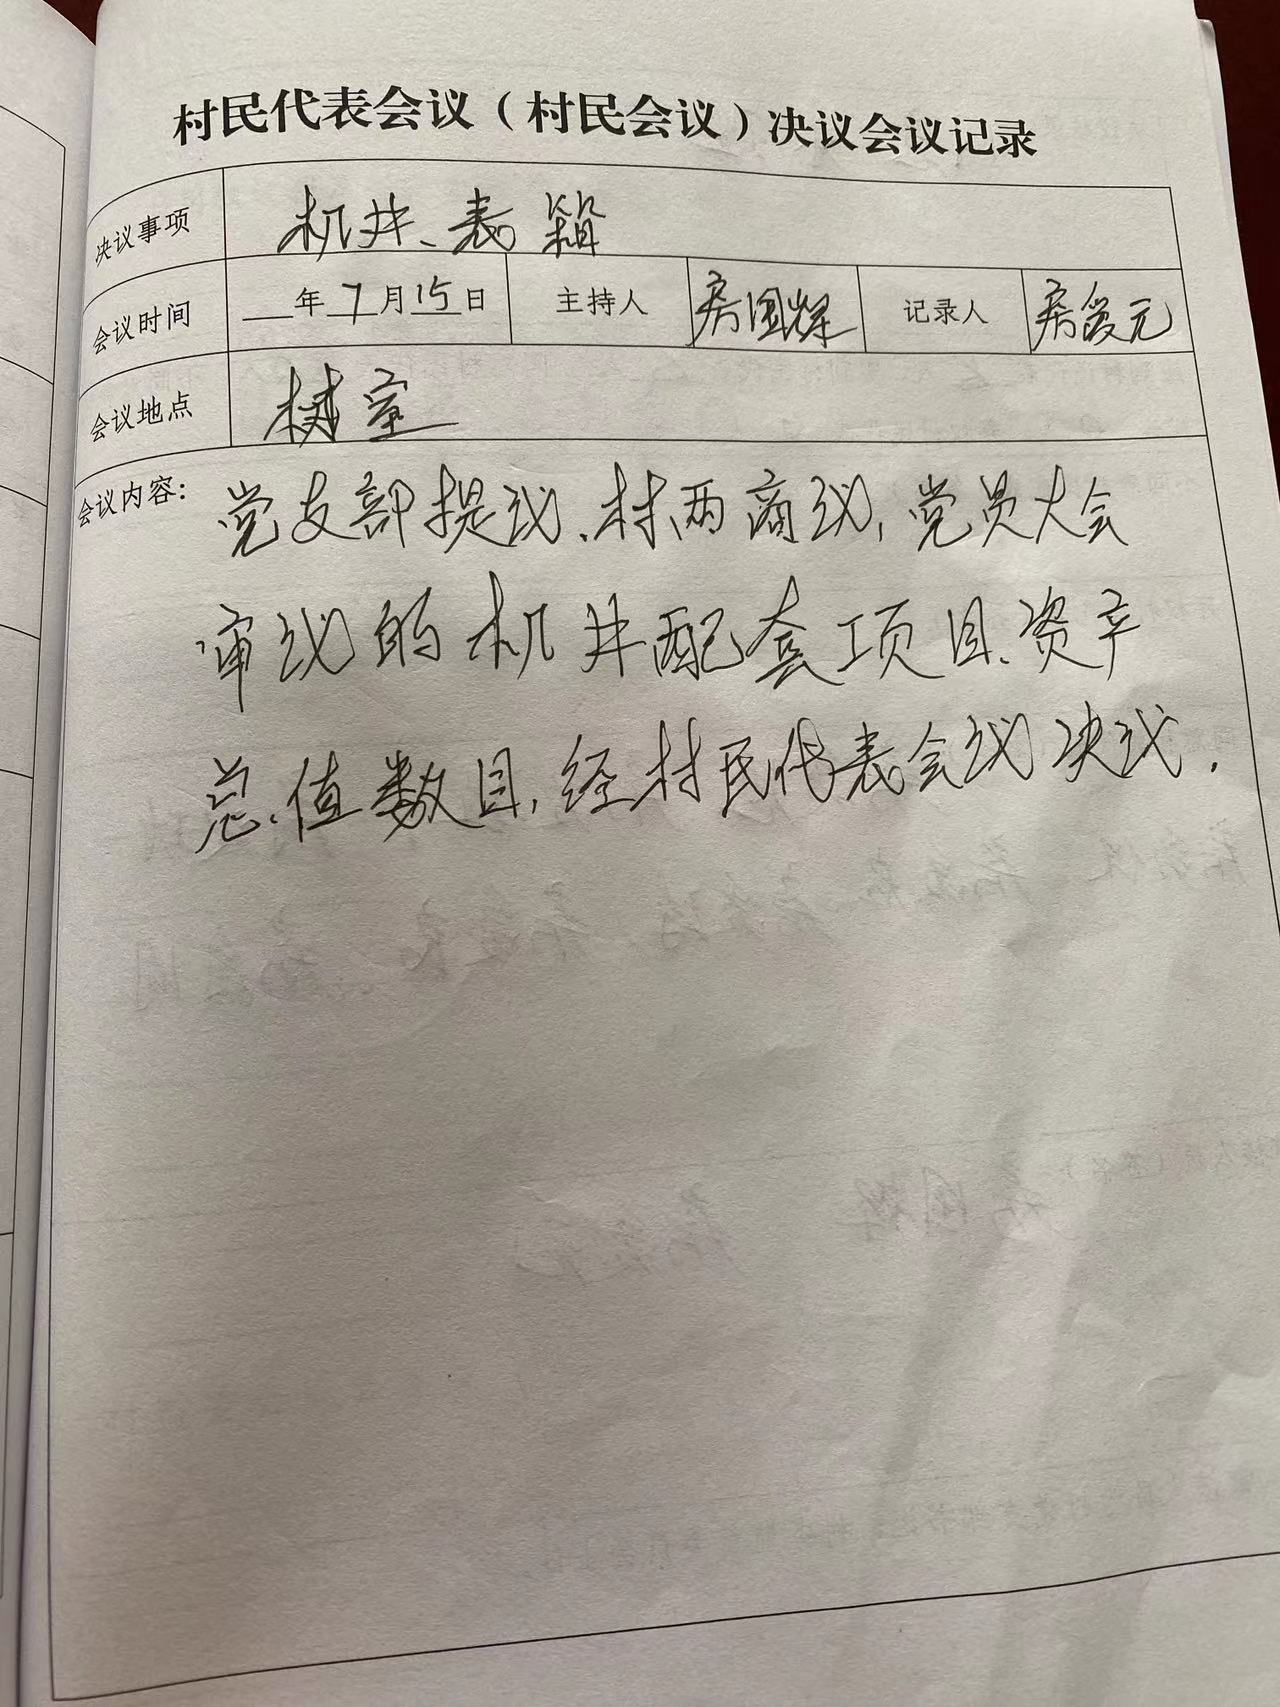 村民代表会议（村民会议）决议会议记录
决议事项 机井、表箱
会议时间 年7月15日 主持人 房国辉 记录人 房爱元
会议地点 室
会议内容： 党支部提议、村两商议，党员大会
审议的机井配套项目、资产
总值数目，经村民代表会议决议．